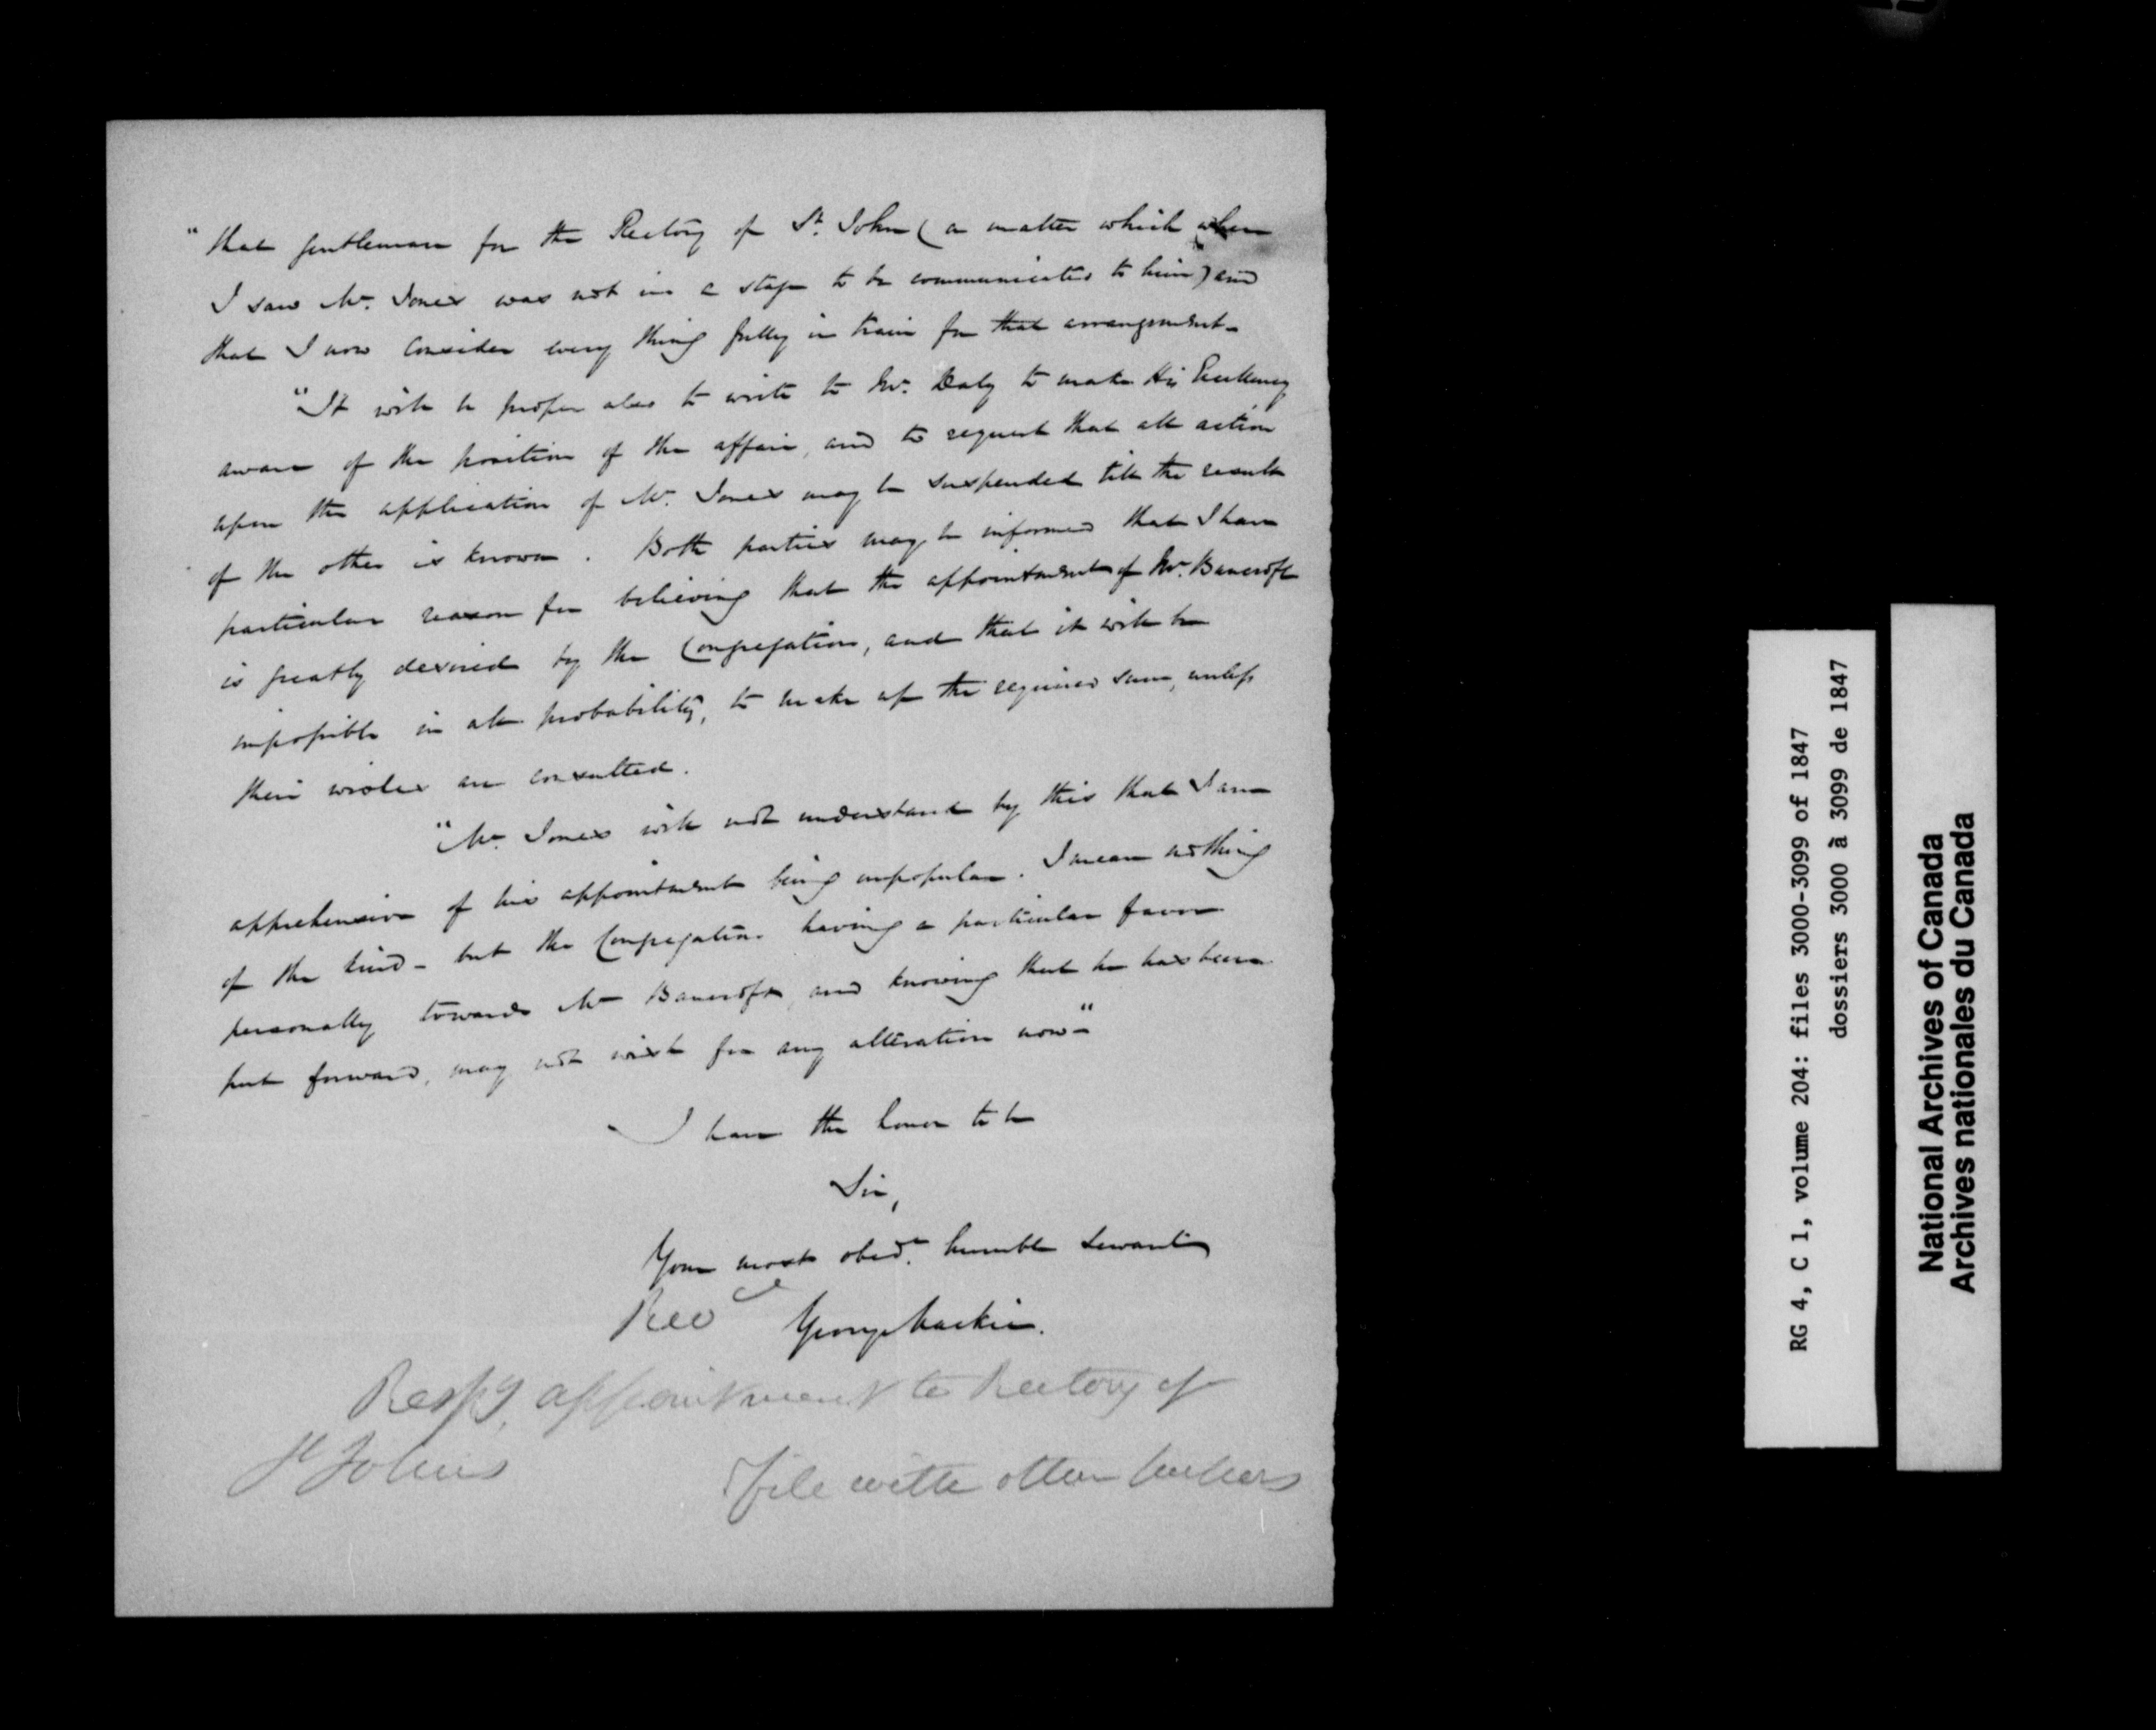 "that gentleman for the Rectory of St. John (a matter which when
I saw Mr. Jones was not in a stage to be communicated to him) and
that I now consider every thing fully in train for that arrangement -
"It will be proper also to write to Mr. Daly to make His Excellency
aware of the position of the affair, and to request that all action
upon the application of Mr. Jones may be suspended till the result
of the other is known. Both parties may be informed that I have
particular reason for believing that the appointment of Mr. Bancroft
is greatly desired by the Congregation, and that it will be
impossible in all probability, to make up the required sum, unless
their wishes are consulted.
"Mr. Jones will not understand by this that I am
apprehensive of his appointment being unpopular. I mean nothing
of the kind - but the Congregation having a particular favor
personally towards Mr Bancroft, and knowing that he has been
put forward, may not wish for any alteration now -"
I have the honor to be
Sir,
Your most obedt. humble servant
Revd George Mackie.
Respg. appointment to Rectory of
St Johns
File with other papers
RG 4, C 1, volume 204: files 3000-3099 of 1847
dossiers 3000 à 3099 de 1847
National Archives of Canada
Archives nationales du Canada